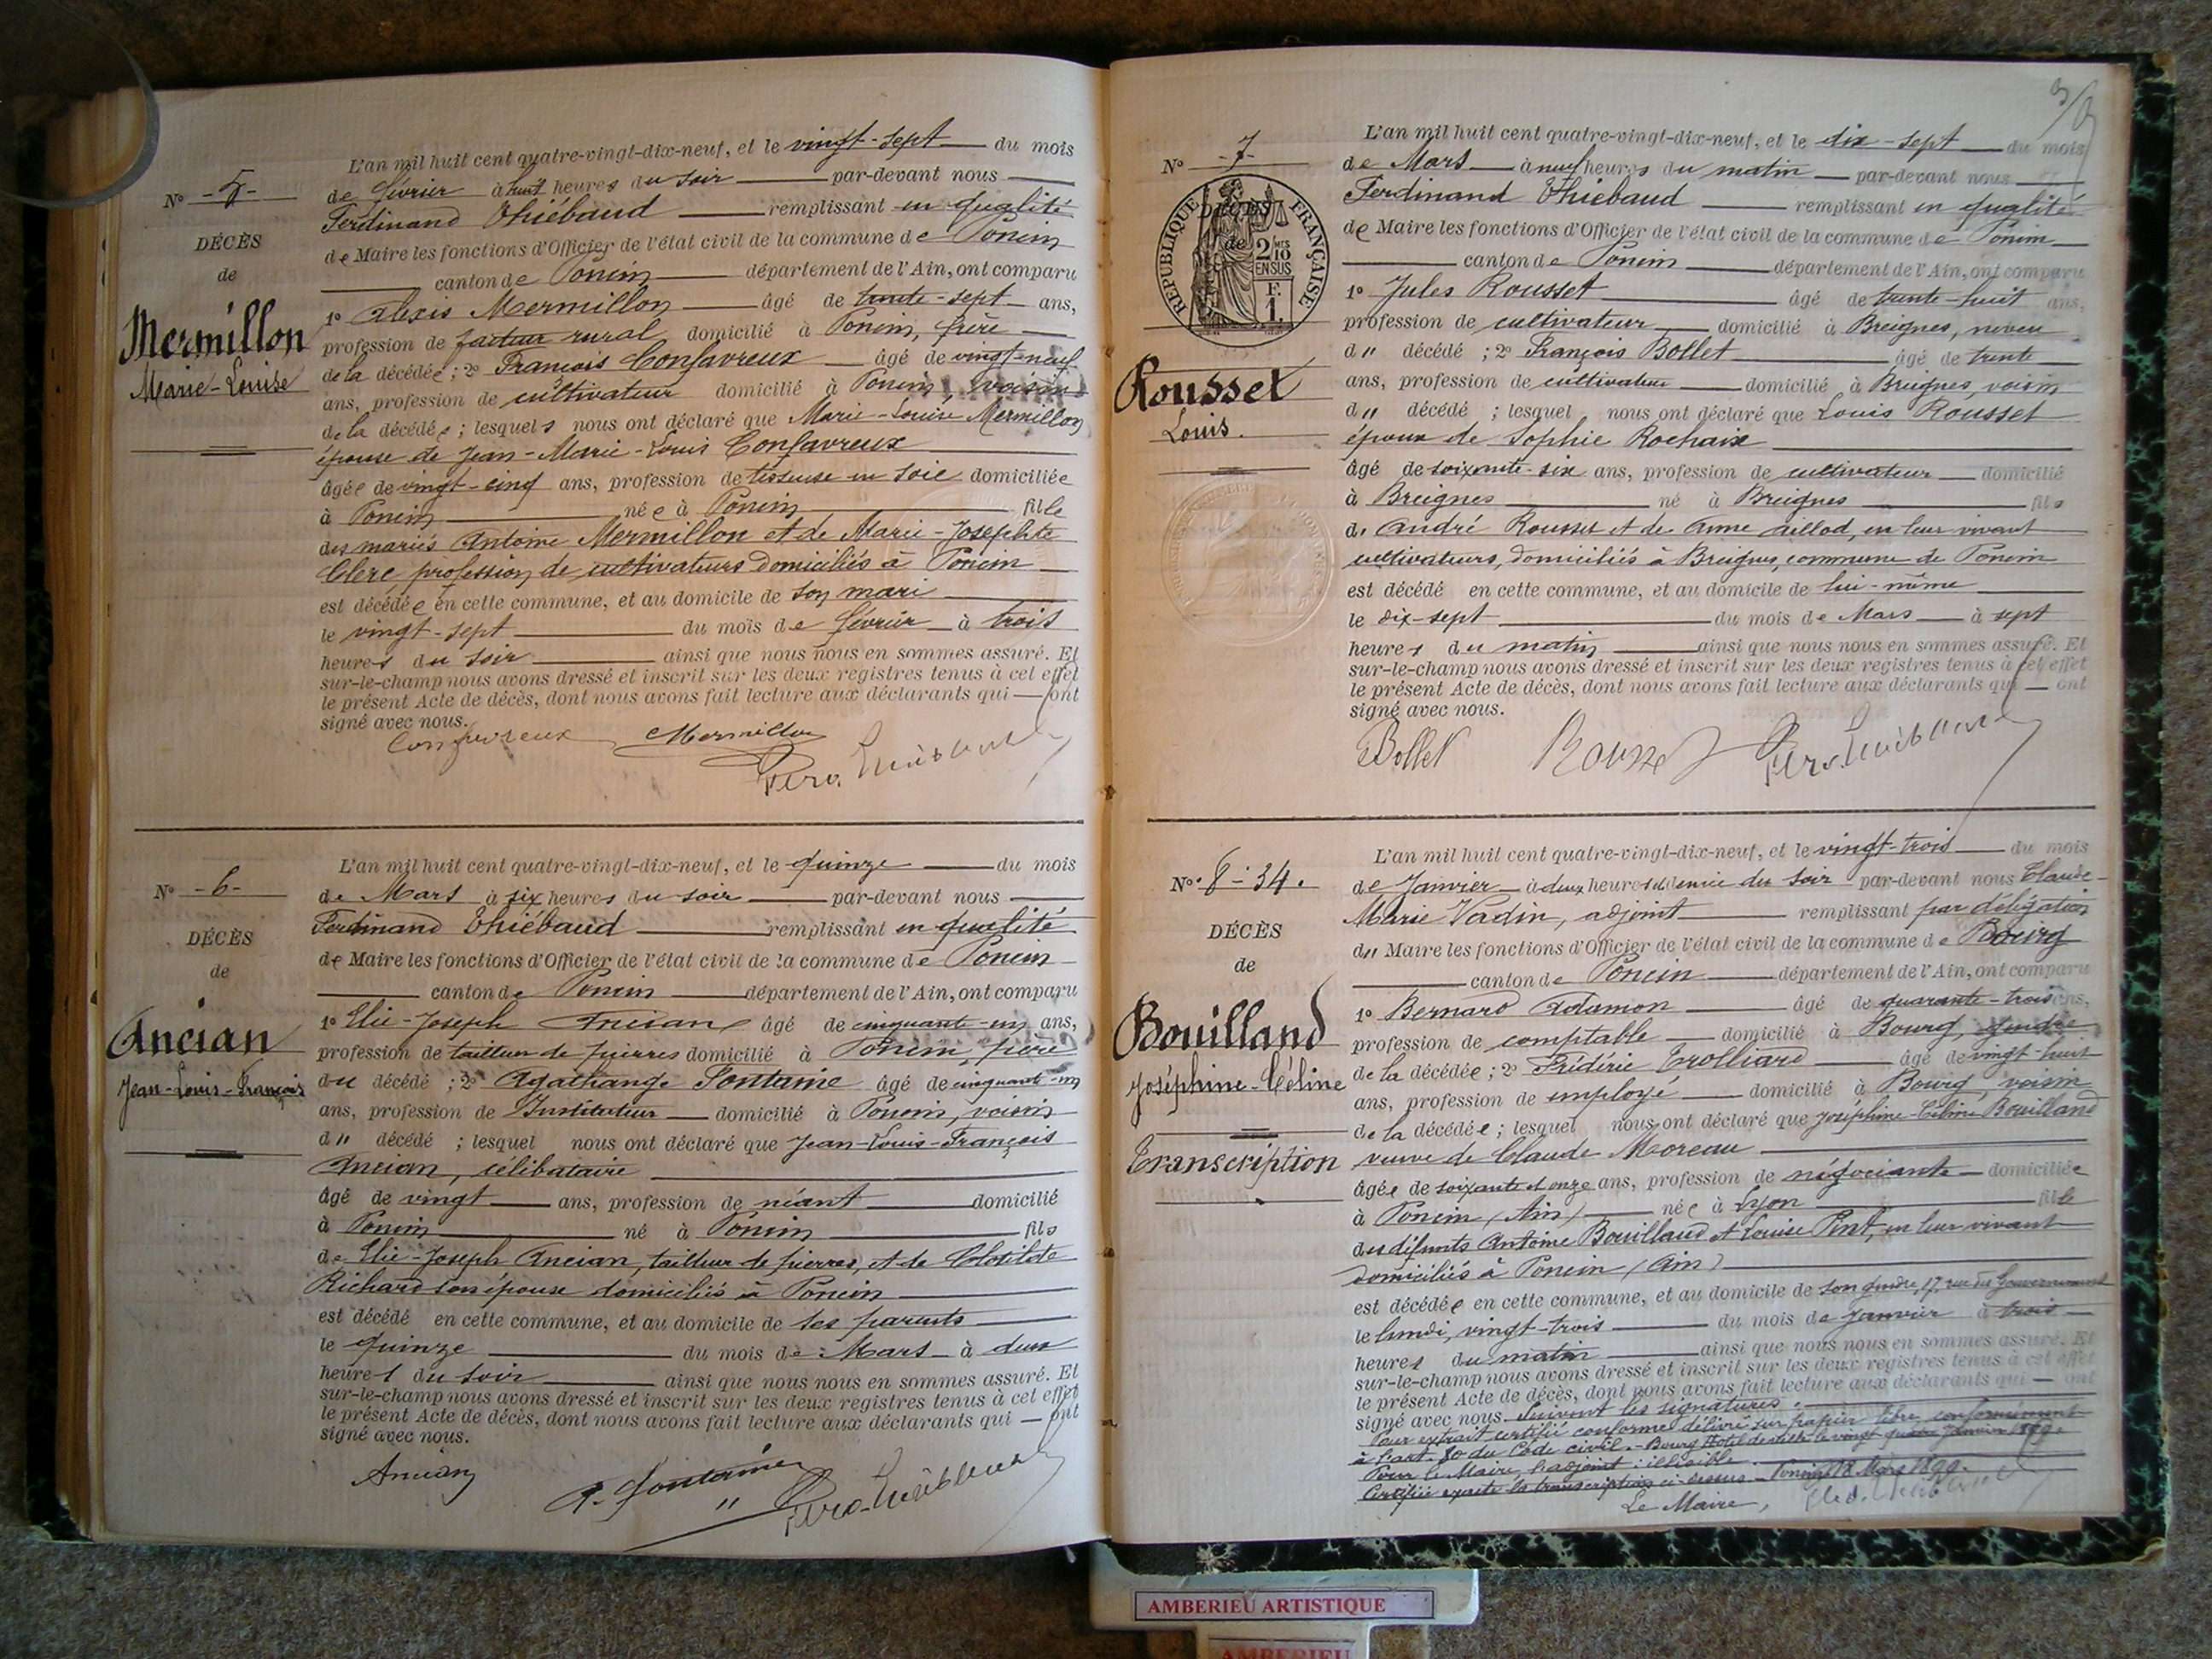 L'an mil huit cent quatre-vingt-dix-neuf, et le vingt-sept du mois
N° -5- de février à huit heures du soir par-devant nous
Ferdinand Thiébaud remplissant en qualité
DÉCÈS
de Maire les fonctions d'Officier de l'état civil de la commune de Poncin
de
canton de Poncin département de l'Ain, ont comparu
Mermillon
Marie-Louise
1° Alexis Mermillon âgé de trente-sept ans,
profession de facteur rural domicilié à Poncin, frère
de la décédée ; 2° François Confavreux âgé de vingt-neuf
ans, profession de cultivateur domicilié à Poncin, voisin
de la décédée ; lesquels nous ont déclaré que Marie-Louise Mermillon
épouse de Jean-Marie-Louis Confavreux
âgée de vingt-cinq ans, profession de tisseuse en soie domiciliée
à Poncin née à Poncin fille
des mariés Antoine Mermillon et de Marie-Josephte
Clerc, profession de cultivateurs domiciliés à Poncin
est décédée en cette commune, et au domicile de son mari
le vingt-sept du mois de février à trois
heures du soir ainsi que nous nous en sommes assuré. Et
sur-le-champ nous avons dressé et inscrit sur les deux registres tenus à cet effet
le présent Acte de décès, dont nous avons fait lecture aux déclarants qui ont
signé avec nous.
Confavreux Mermillon
Ferd. Thiébaud
L'an mil huit cent quatre-vingt-dix-neuf, et le quinze du mois
N° -6- de Mars à six heures du soir par-devant nous
Ferdinand Thiébaud remplissant en qualité
DÉCÈS
de Maire les fonctions d'Officier de l'état civil de la commune de Poncin
de
canton de Poncin département de l'Ain, ont comparu
Ancian
Jean-Louis-François
1° Elie-Joseph Ancian âgé de cinquante-un ans,
profession de tailleur de pierres domicilié à Poncin, père
du décédé ; 2° Agathange Fontaine âgé de cinquante-un
ans, profession de Instituteur domicilié à Poncin, voisin
du décédé ; lesquel nous ont déclaré que Jean-Louis-François
Ancian, célibataire
âgé de vingt ans, profession de néant domicilié
à Poncin né à Poncin fils
de Elie-Joseph Ancian, tailleur de pierres, et de Clotilde
Richard son épouse domiciliés à Poncin
est décédé en cette commune, et au domicile de ses parents
le quinze du mois de Mars à deux
heures du soir ainsi que nous nous en sommes assuré. Et
sur-le-champ nous avons dressé et inscrit sur les deux registres tenus à cet effet
le présent Acte de décès, dont nous avons fait lecture aux déclarants qui ont
signé avec nous.
Ancian A. Fontaine Ferd. Thiébaud
L'an mil huit cent quatre-vingt-dix-neuf, et le dix-sept du mois
N° -7- de Mars à neuf heures du matin par-devant nous
Ferdinand Thiébaud remplissant en qualité
RÉPUBLIQUE FRANÇAISE
2/10 EN SUS
F. 1.
de Maire les fonctions d'Officier de l'état civil de la commune de Poncin
canton de Poncin département de l'Ain, ont comparu
1° Jules Rousset âgé de trente-huit ans,
profession de cultivateur domicilié à Breignes, neveu
Rousset
Louis.
du décédé ; 2° François Bollet âgé de trente
ans, profession de cultivateur domicilié à Breignes, voisin
du décédé ; lesquel nous ont déclaré que Louis Rousset
époux de Sophie Rochaix
âgé de soixante-six ans, profession de cultivateur domicilié
à Breignes né à Breignes fils
de André Rousset et de Anne Aillod, en leur vivant
cultivateurs, domiciliés à Breignes, commune de Poncin
est décédé en cette commune, et au domicile de lui-même
le dix-sept du mois de Mars à sept
heures du matin ainsi que nous nous en sommes assuré. Et
sur-le-champ nous avons dressé et inscrit sur les deux registres tenus à cet effet
le présent Acte de décès, dont nous avons fait lecture aux déclarants qui ont
signé avec nous.
Bollet Rousset Ferd. Thiébaud
L'an mil huit cent quatre-vingt-dix-neuf, et le vingt-trois du mois
N° 8-34. de Janvier à deux heures et demie du soir par-devant nous Claude-
Marie Vadin, adjoint remplissant par délégation
DÉCÈS
du Maire les fonctions d'Officier de l'état civil de la commune de Bourg
de
canton de Poncin département de l'Ain, ont comparu
Bouilland
Joséphine-Céline
Transcription
1° Bernard âgé de quarante-trois ans,
profession de comptable domicilié à Bourg, gendre
de la décédée ; 2° Frédéric Trolliard âgé de vingt-huit
ans, profession de employé domicilié à Bourg, voisin
de la décédée ; lesquel nous ont déclaré que Joséphine-Céline Bouilland
veuve de Claude Moreau
âgée de soixante et onze ans, profession de négociante domiciliée
à Poncin (Ain) née à Lyon fille
des défunts Antoine Bouilland et Louise, en leur vivant
domiciliés à Poncin (Ain)
est décédée en cette commune, et au domicile de son gendre, 17, rue du Gouvernement
le lundi, vingt-trois du mois de Janvier à trois
heures du matin ainsi que nous nous en sommes assuré. Et
sur-le-champ nous avons dressé et inscrit sur les deux registres tenus à cet effet
le présent Acte de décès, dont nous avons fait lecture aux déclarants qui ont
signé avec nous. Suivent les signatures.
Pour extrait certifié conforme délivré sur papier libre conformément
à l'art. 80 du Code civil. - Bourg Hôtel de ville le vingt quatre Janvier 1899.
Pour le Maire, l'adjoint : illisible
Certifiée exacte la transcription ci-dessus - Poncin 18 Mars 1899.
Le Maire, Ferd. Thiébaud
AMBERIEU ARTISTIQUE
AMBERIEU